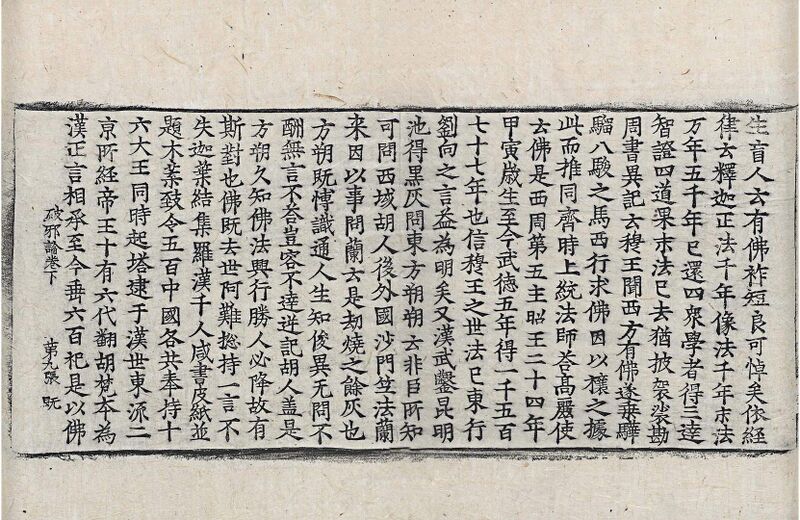 生盲人云有佛祚短良可悼矣依經
律云釋迦正法千年像法千年末法
万年五千年已還四衆學者得三達
智證四道果末法已去猶披袈裟勘
周書異記云穆王聞西方有佛遂乘驊
騮八駿之馬西行求佛因以禳之據
此而推同齊時上統法師荅髙麗使
云佛是西周第五主昭王二十四年
甲寅歲生至今武德五年得一千五百
七十七年也信穆王之世法已東行
劉向之言益為明矣又漢武鑿昆明
池得黒灰問東方朔朔云非臣所知
可問西域胡人後外國沙門竺法蘭
来因以事問蘭云是劫燒之餘灰也
方朔既愽識通人生知俊異无問不
酬無言不荅豈容不達逆記胡人盖是
方朔久知佛法興行勝人必降故有
斯對也佛既去世阿難捴持一言不
失迦葉結集羅漢千人咸書皮紙並
題木葉致令五百中國各共奉持十
六大王同時起塔逮于漢世東派二
京所經帝王十有六代翻胡梵本為
漢正言相承至今垂六百祀是以佛
破邪論卷下 第九張 既